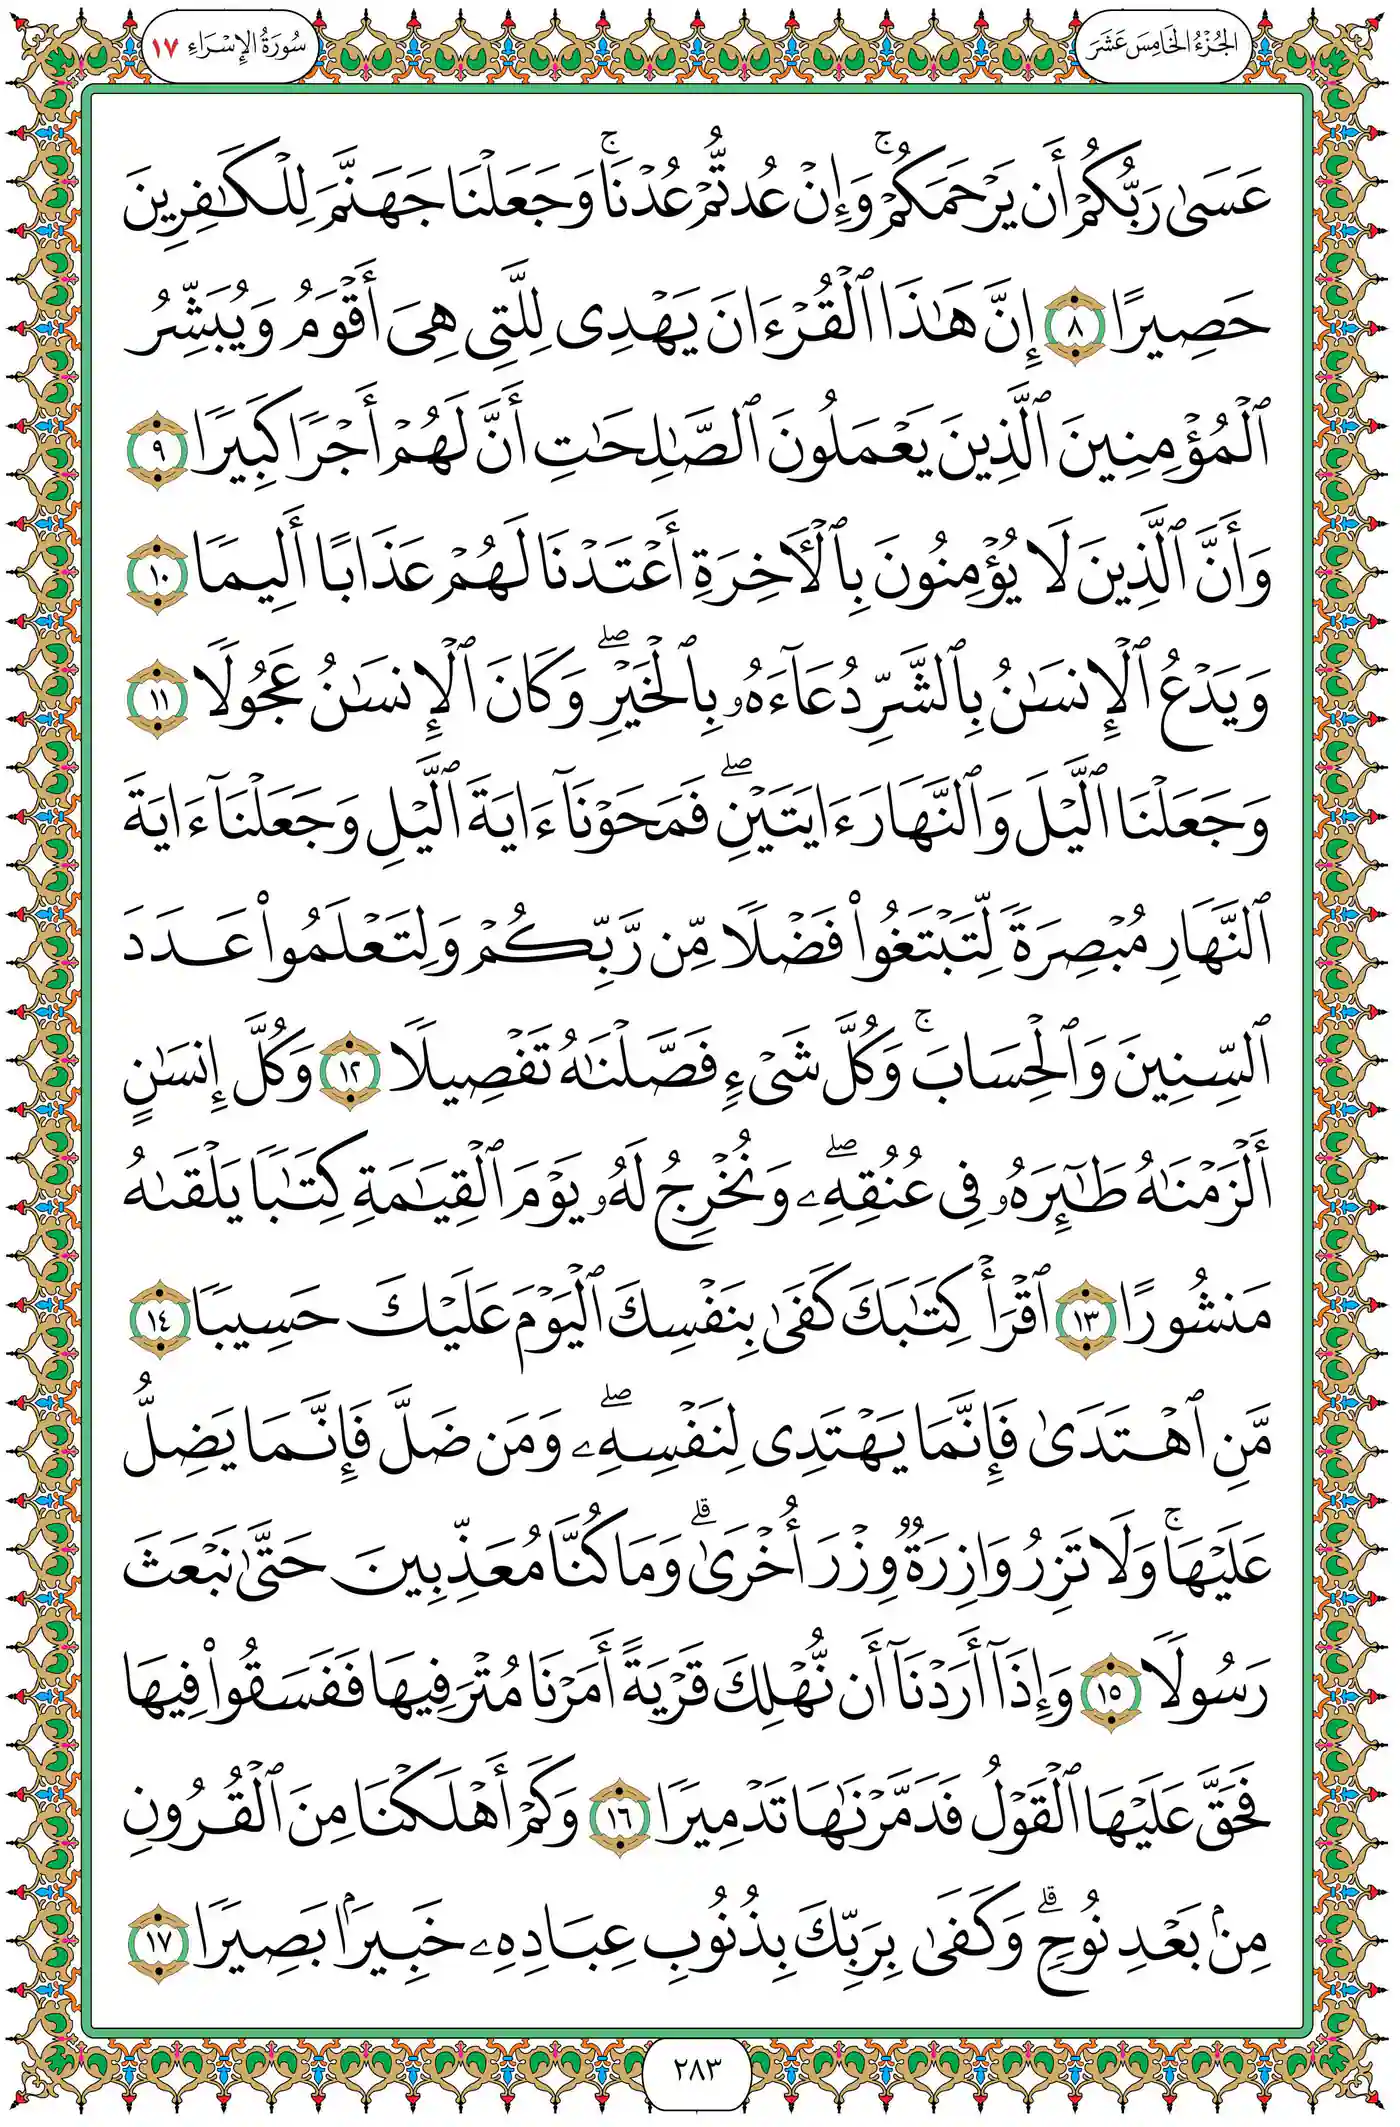 الجُزْءُ الخَامِسَ عَشَرَ
سُورَةُ الإِسْرَاءِ ١٧
عَسَىٰ رَبُّكُمْ أَن يَرْحَمَكُمْۚ وَإِنْ عُدتُّمْ عُدْنَاۚ وَجَعَلْنَا جَهَنَّمَ لِلْكَٰفِرِينَ
حَصِيرًا ٨ إِنَّ هَٰذَا ٱلْقُرْءَانَ يَهْدِى لِلَّتِى هِىَ أَقْوَمُ وَيُبَشِّرُ
ٱلْمُؤْمِنِينَ ٱلَّذِينَ يَعْمَلُونَ ٱلصَّٰلِحَٰتِ أَنَّ لَهُمْ أَجْرًا كَبِيرًا ٩
وَأَنَّ ٱلَّذِينَ لَا يُؤْمِنُونَ بِٱلْءَاخِرَةِ أَعْتَدْنَا لَهُمْ عَذَابًا أَلِيمًا ١٠
وَيَدْعُ ٱلْإِنسَٰنُ بِٱلشَّرِّ دُعَآءَهُۥ بِٱلْخَيْرِۖ وَكَانَ ٱلْإِنسَٰنُ عَجُولًا ١١
وَجَعَلْنَا ٱلَّيْلَ وَٱلنَّهَارَ ءَايَتَيْنِۖ فَمَحَوْنَآ ءَايَةَ ٱلَّيْلِ وَجَعَلْنَآ ءَايَةَ
ٱلنَّهَارِ مُبْصِرَةً لِّتَبْتَغُوا۟ فَضْلًا مِّن رَّبِّكُمْ وَلِتَعْلَمُوا۟ عَدَدَ
ٱلسِّنِينَ وَٱلْحِسَابَۚ وَكُلَّ شَىْءٍ فَصَّلْنَٰهُ تَفْصِيلًا ١٢ وَكُلَّ إِنسَٰنٍ
أَلْزَمْنَٰهُ طَٰٓئِرَهُۥ فِى عُنُقِهِۦۖ وَنُخْرِجُ لَهُۥ يَوْمَ ٱلْقِيَٰمَةِ كِتَٰبًا يَلْقَىٰهُ
مَنشُورًا ١٣ ٱقْرَأْ كِتَٰبَكَ كَفَىٰ بِنَفْسِكَ ٱلْيَوْمَ عَلَيْكَ حَسِيبًا ١٤
مَّنِ ٱهْتَدَىٰ فَإِنَّمَا يَهْتَدِى لِنَفْسِهِۦۖ وَمَن ضَلَّ فَإِنَّمَا يَضِلُّ
عَلَيْهَاۚ وَلَا تَزِرُ وَازِرَةٌ وِزْرَ أُخْرَىٰۗ وَمَا كُنَّا مُعَذِّبِينَ حَتَّىٰ نَبْعَثَ
رَسُولًا ١٥ وَإِذَآ أَرَدْنَآ أَن نُّهْلِكَ قَرْيَةً أَمَرْنَا مُتْرَفِيهَا فَفَسَقُوا۟ فِيهَا
فَحَقَّ عَلَيْهَا ٱلْقَوْلُ فَدَمَّرْنَٰهَا تَدْمِيرًا ١٦ وَكَمْ أَهْلَكْنَا مِنَ ٱلْقُرُونِ
مِنۢ بَعْدِ نُوحٍۗ وَكَفَىٰ بِرَبِّكَ بِذُنُوبِ عِبَادِهِۦ خَبِيرًۢا بَصِيرًا ١٧
٢٨٣